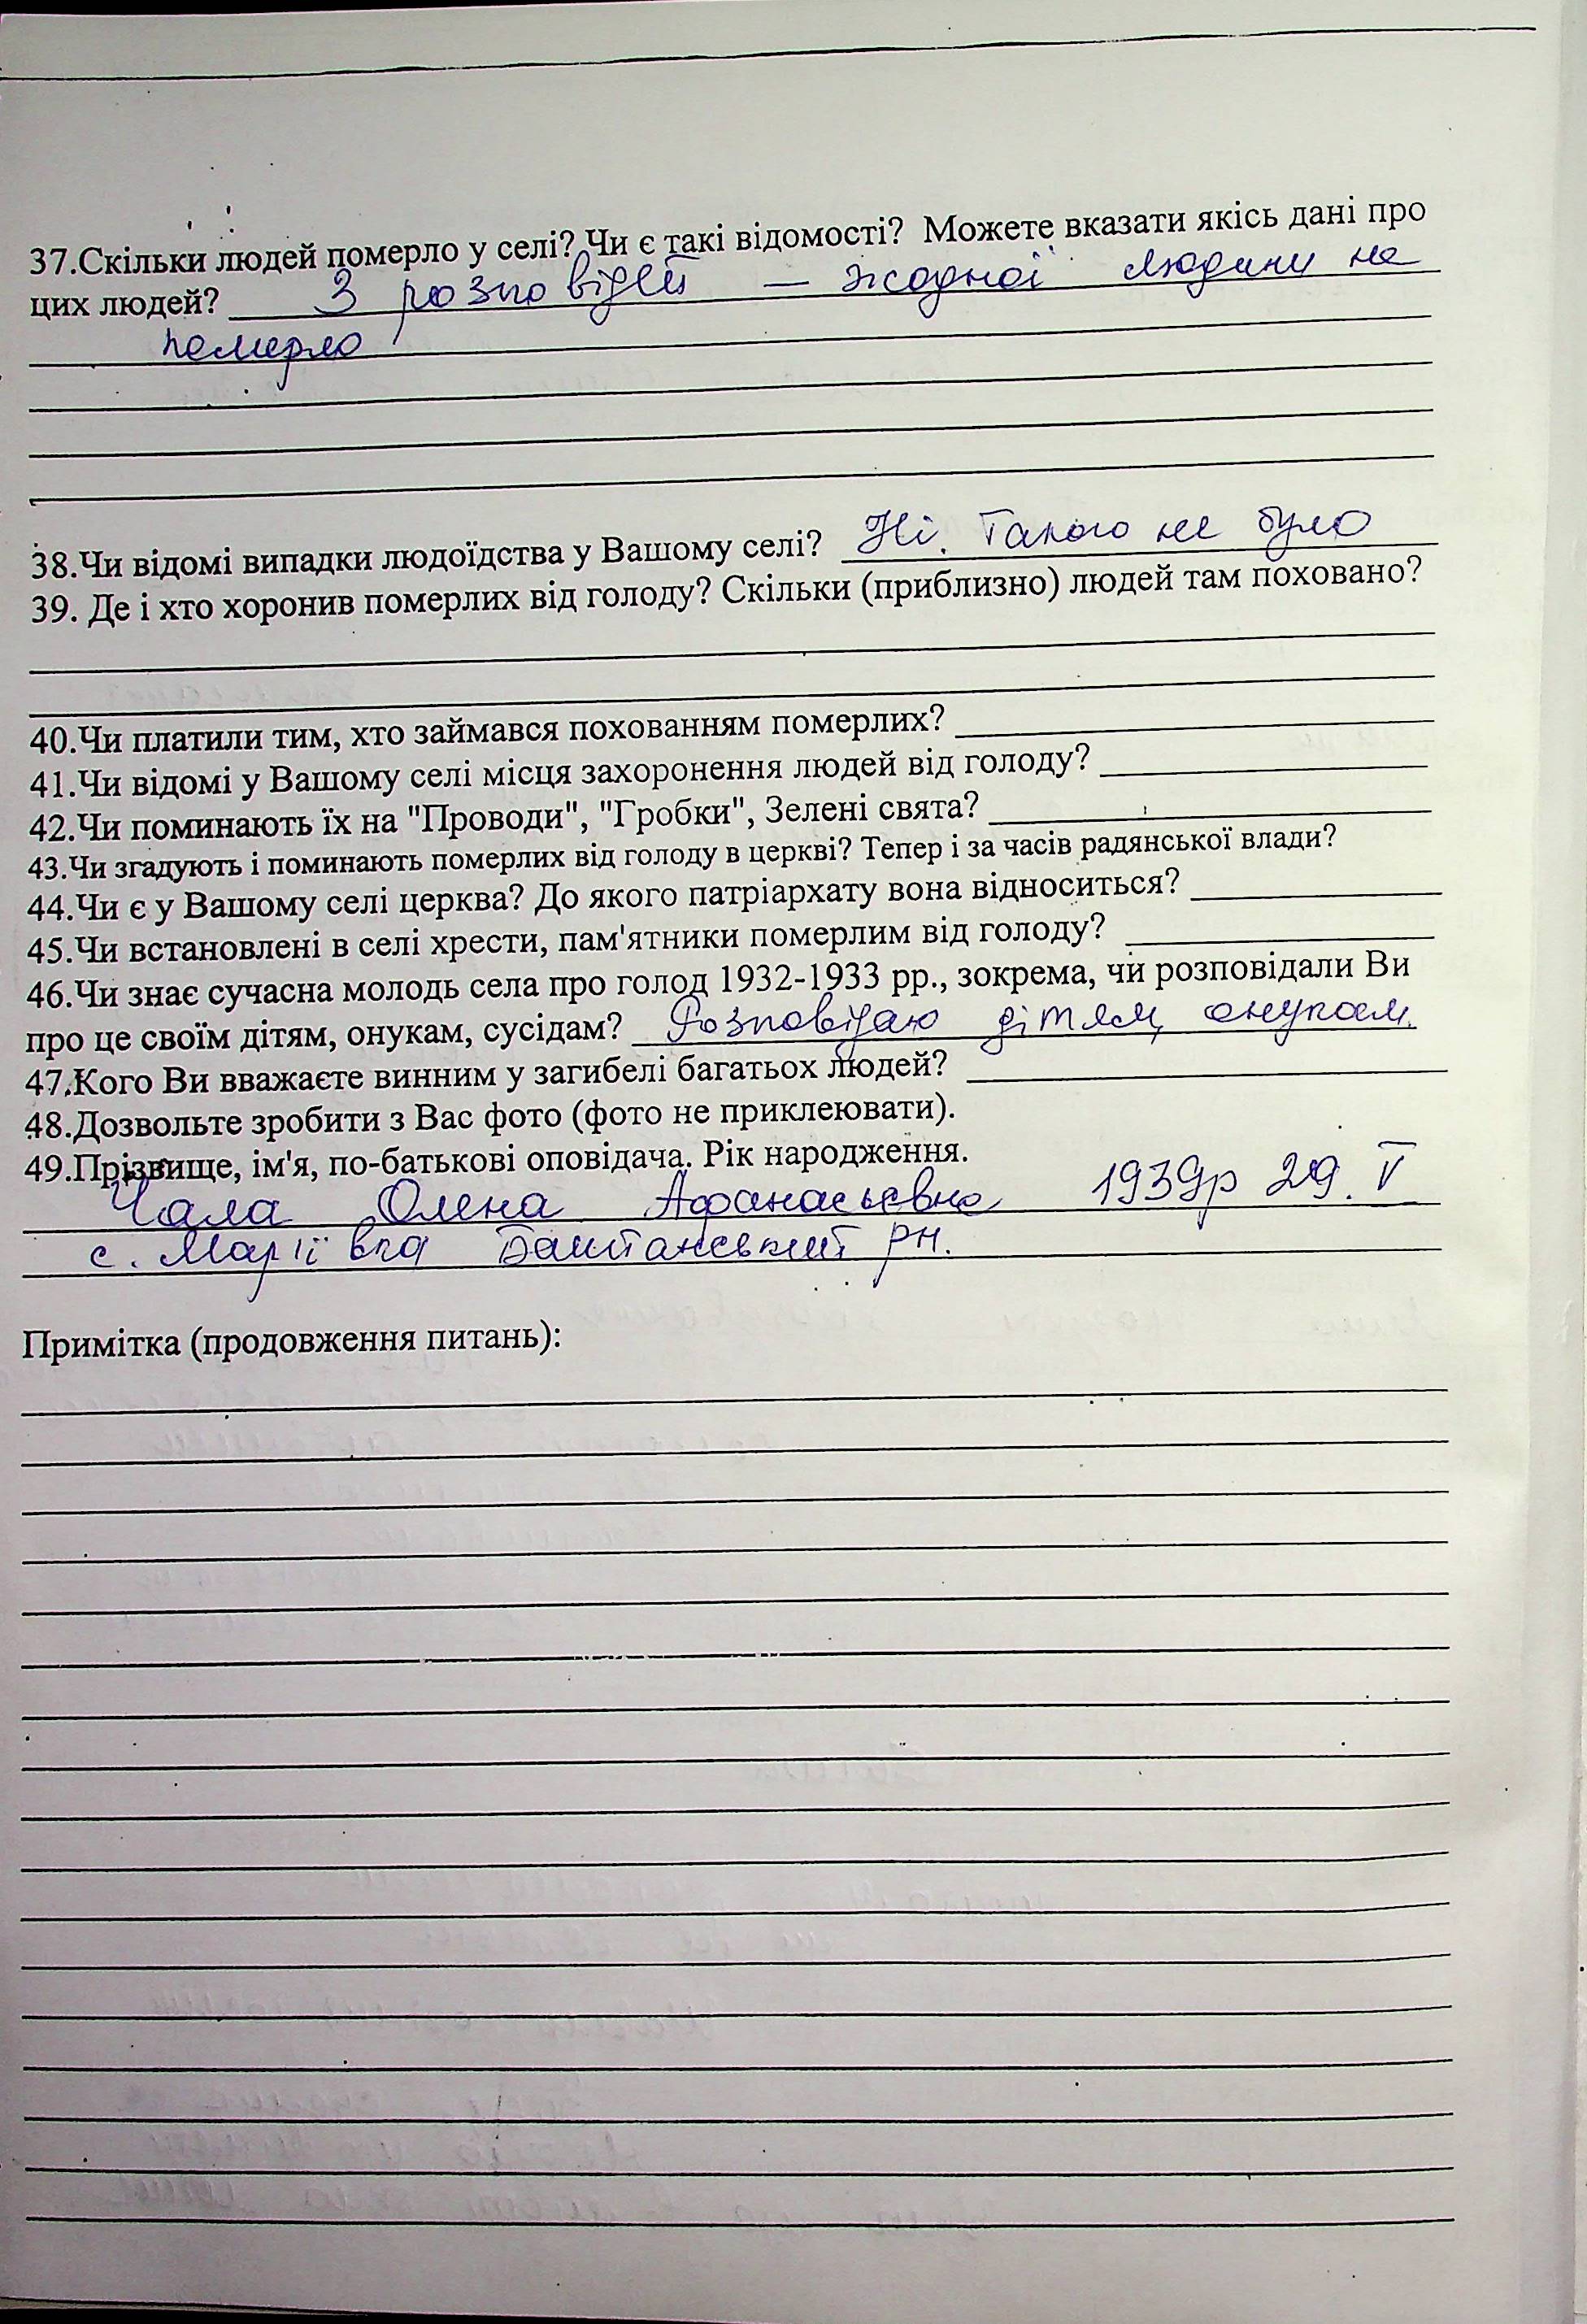 37.Скільки людей померло у селі? Чи є такі відомості? Можете вказати якісь дані про
цих людей? З розповідей — жодної людини не
померло
38.Чи відомі випадки людоїдства у Вашому селі? Ні. Такого не було
39. Де і хто хоронив померлих від голоду? Скільки (приблизно) людей там поховано?
40.Чи платили тим, хто займався похованням померлих?
41.Чи відомі у Вашому селі місця захоронення людей від голоду?
42.Чи поминають їх на "Проводи", "Гробки", Зелені свята?
43.Чи згадують і поминають померлих від голоду в церкві? Тепер і за часів радянської влади?
44.Чи є у Вашому селі церква? До якого патріархату вона відноситься?
45.Чи встановлені в селі хрести, пам'ятники померлим від голоду?
46.Чи знає сучасна молодь села про голод 1932-1933 рр., зокрема, чи розповідали Ви
про це своїм дітям, онукам, сусідам? Розповідаю дітям, онукам.
47.Кого Ви вважаєте винним у загибелі багатьох людей?
48.Дозвольте зробити з Вас фото (фото не приклеювати).
49.Прізвище, ім'я, по-батькові оповідача. Рік народження.
Чала Олена Афанасьевна 1939р 29. V
с. Маріївка Баштанський рн.
Примітка (продовження питань):